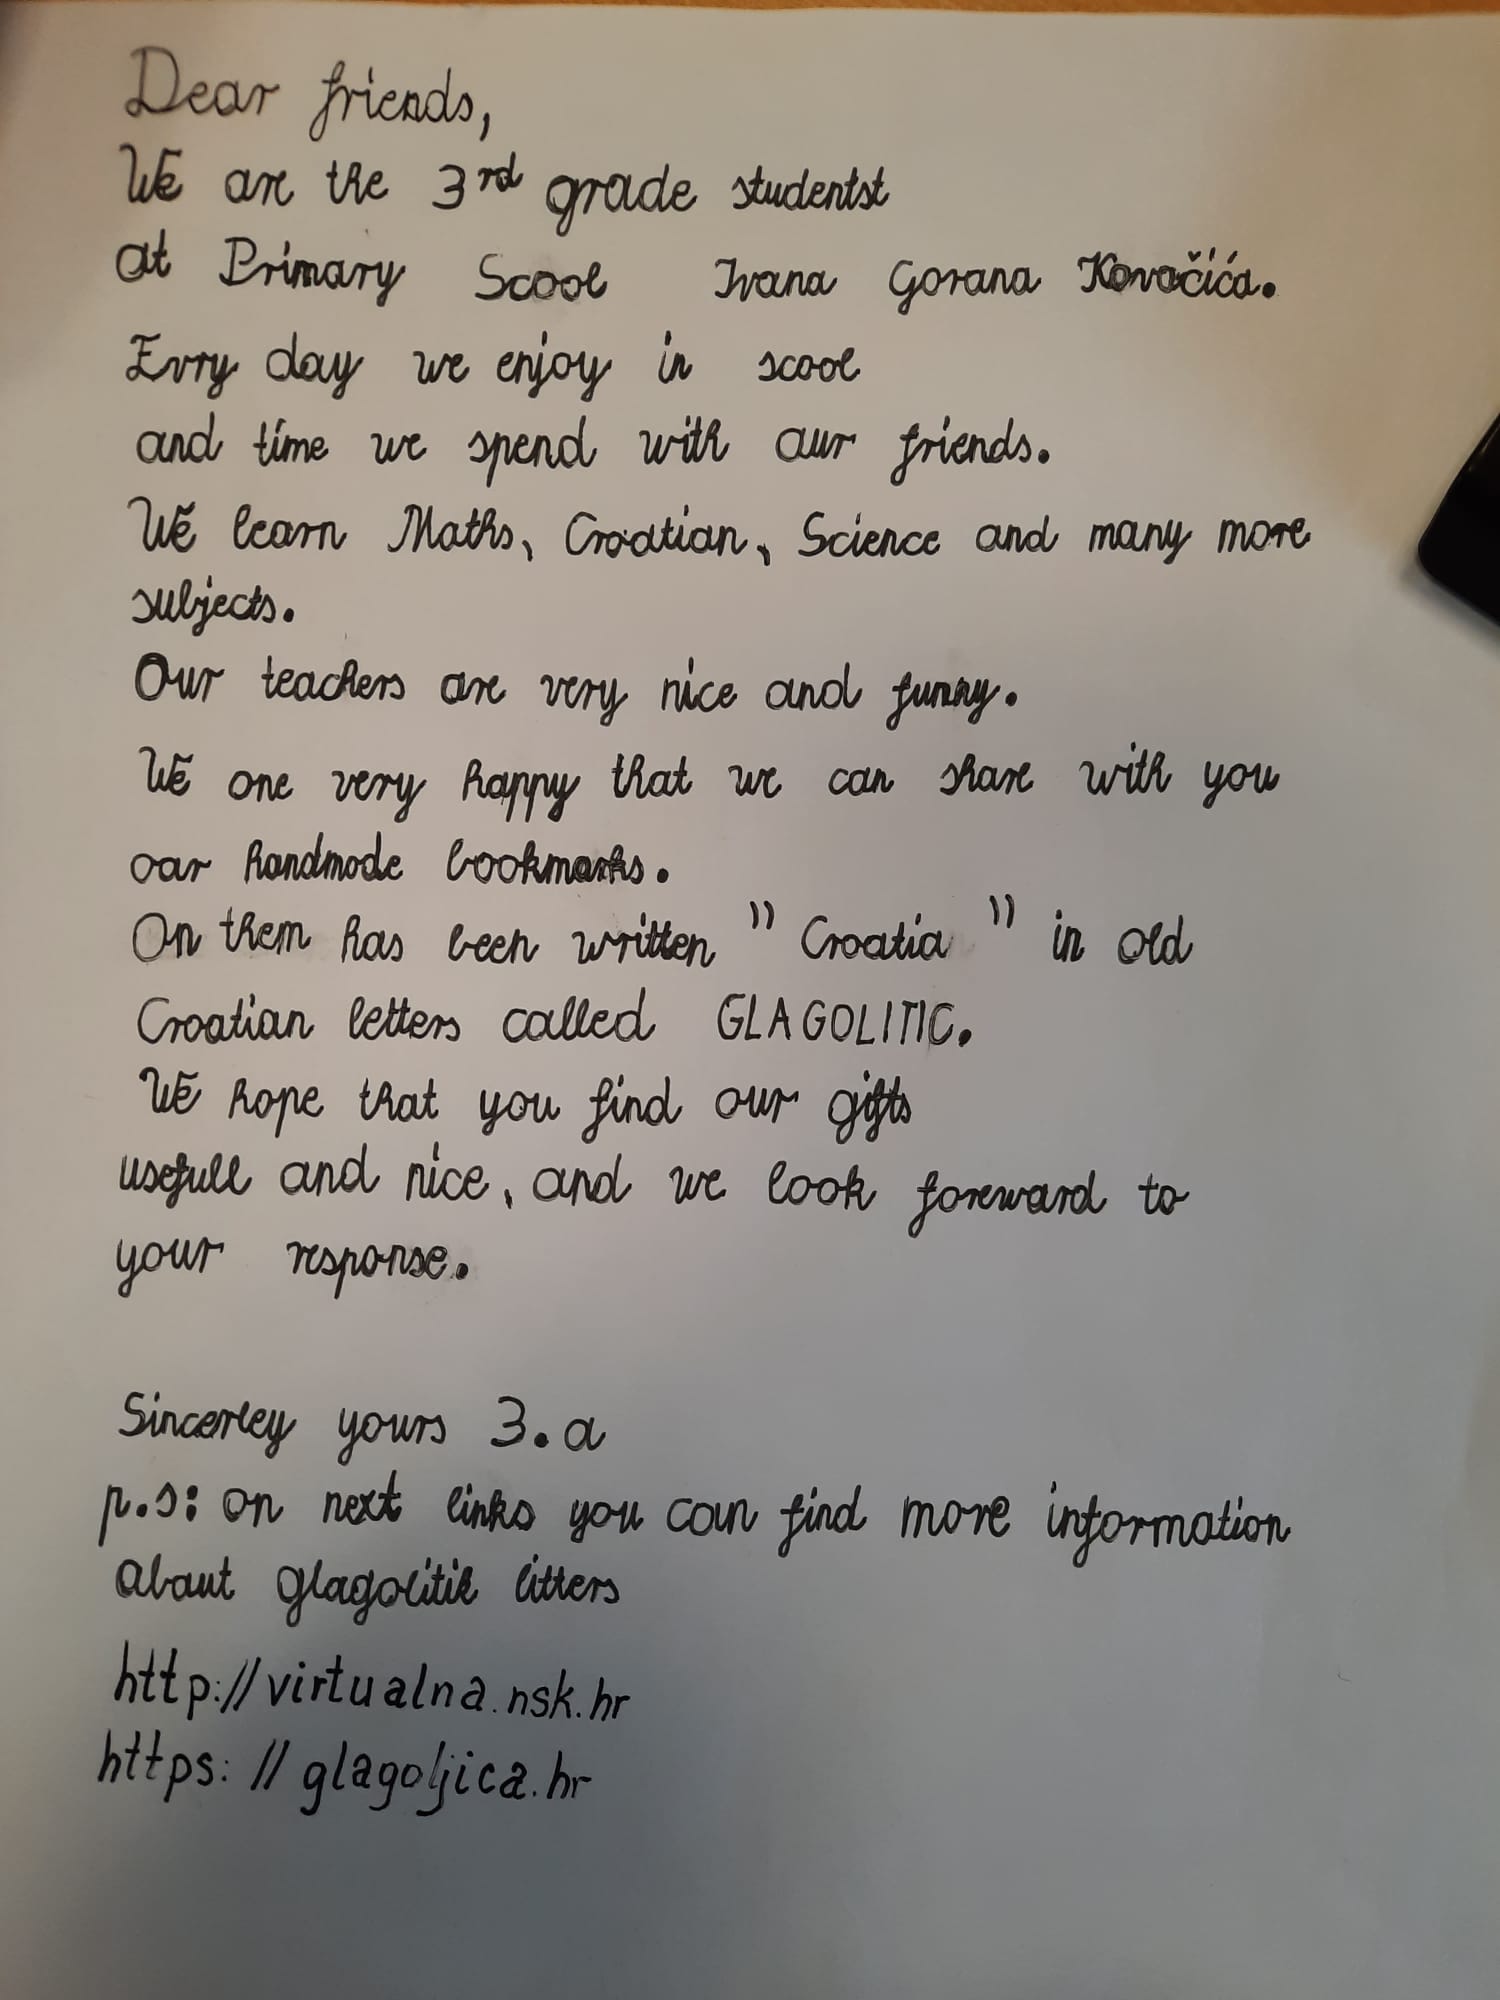 Dear friends,
We are the 3rd grade studentst
at Primary Scool Ivana Gorana Kovačića.
Evry day we enjoy in scool
and time we spend with aur friends.
We learn Maths, Croatian, Science and many more
subjects.
Our teachers are very nice and funny.
We one very happy that we can share with you
oar handmode bookmarks.
On them has been written " Croatia " in old
Croatian letters called GLAGOLITIC.
We hope that you find our gifts
usefull and nice, and we look foreward to
your response.
Sincerley yours 3.a
p.s: on next links you coun find more information
abaut glagolitik litters
http://virtualna.nsk.hr
https://glagoljica.hr